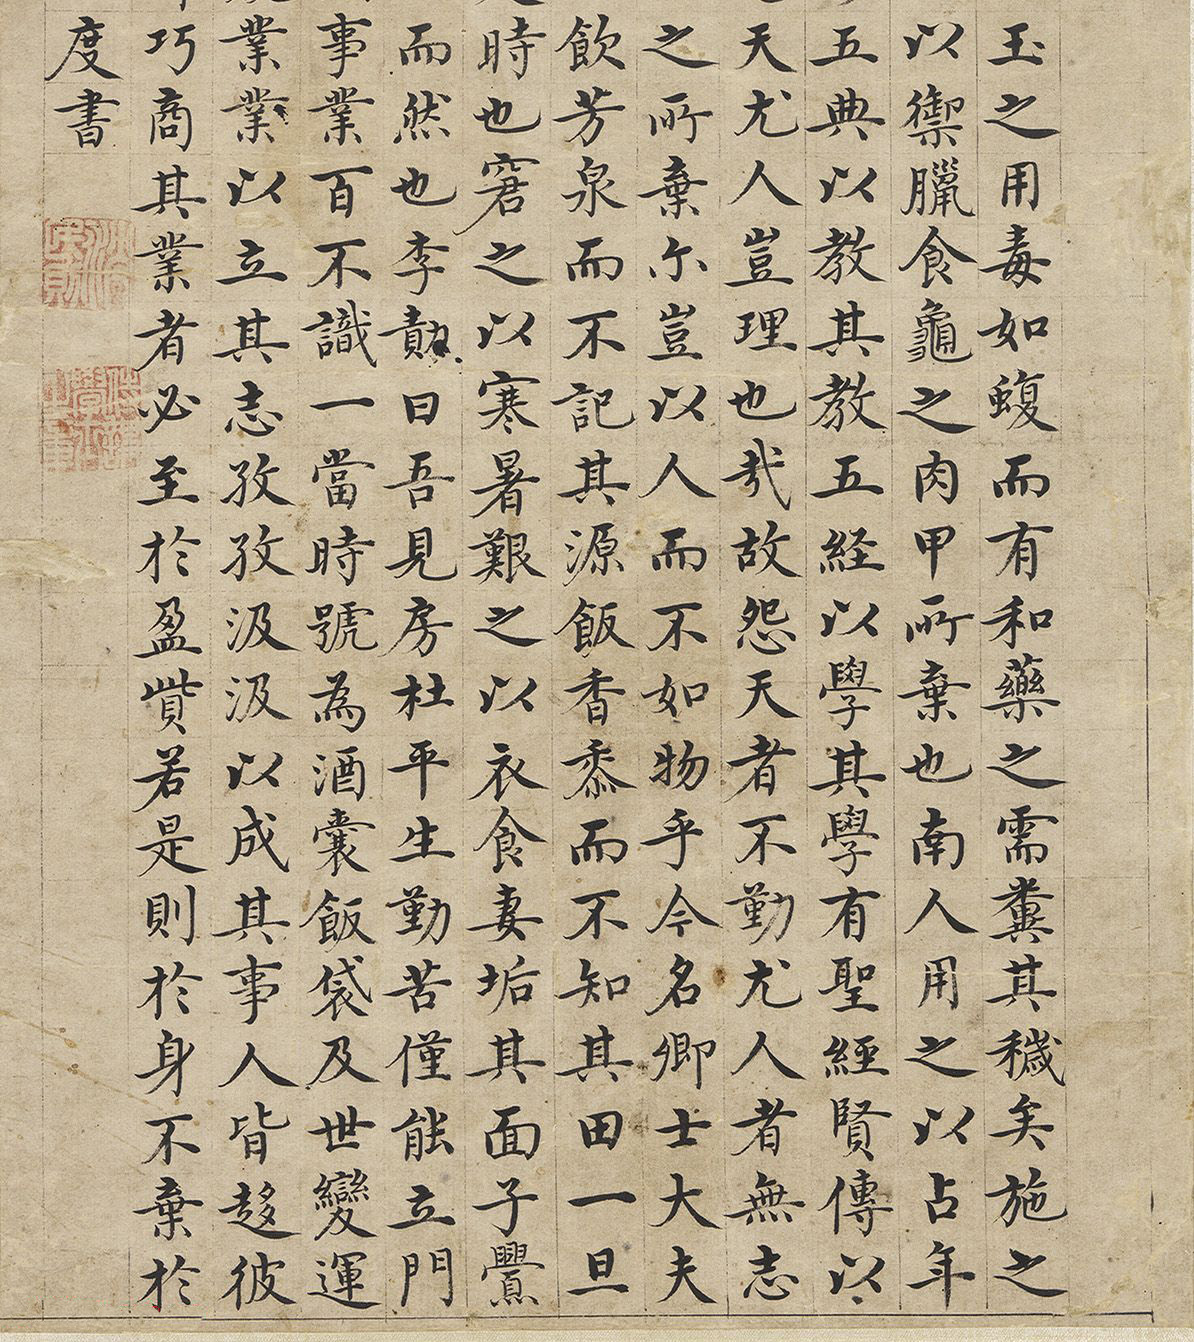 玉之用毒如蝮而有和藥之需糞其穢矣施之
以禦臘食龜之肉甲所棄也南人用之以占年
五典以教其教五経以學其學有聖經賢傳以
天尤人豈理也㦲故怨天者不勤尤人者無志
之所棄尓豈以人而不如物乎今名卿士大夫
飲芳泉而不記其源飯香黍而不知其田一旦
時也窘之以寒暑艱之以衣食妻垢其面子黌
而然也李勣曰吾見房杜平生勤苦僅能立門
事業百不識一當時號為酒囊飯袋及世變運
業業以立其志孜孜汲汲以成其事人皆趍彼
巧商其業者必至於盈貲若是則於身不棄於
度書